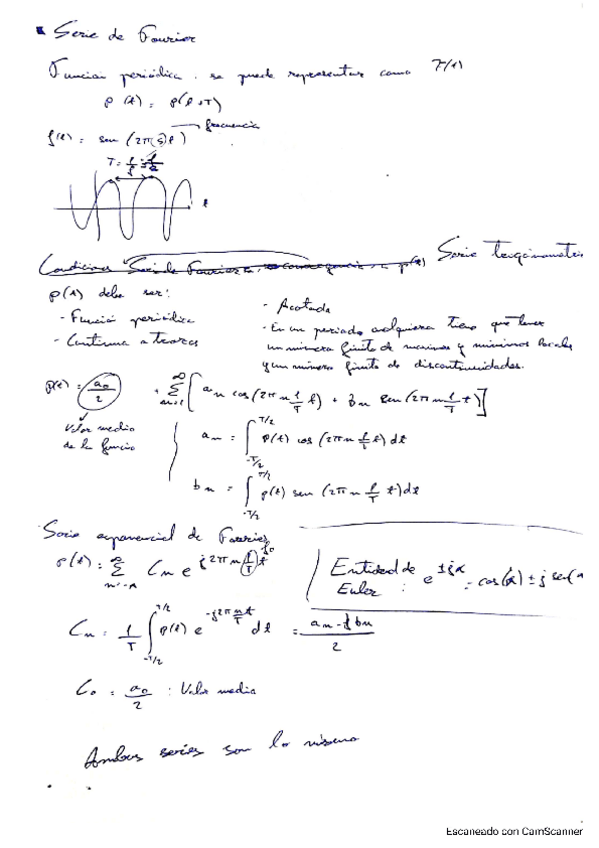 Serie de Fourier
Función periódica, se puede representar como
p(t) = p(t+T)
frecuencia
f(t) = sen (2π(5)t)
T = 1/f =
t
Condiciones Serie de Fourier convergencia p(t)
Serie trigonométri
p(t) debe ser:
- Función periódica
- Continua a trozos
- Acotada
- En un periodo cualquiera tiene que tener
un número finito de máximos y mínimos locales
y un número finito de discontinuidades.
p(t) = a₀/2 + ∑ n=1 ∞ [an cos (2π n 1/T t) + bn sen (2π n 1/T t)]
Valor medio
de la función
an = ∫ -T/2 T/2 p(t) cos (2π n 1/T t) dt
bn = ∫ -T/2 T/2 p(t) sen (2π n 1/T t) dt
Serie exponencial de Fourier
p(t) = ∑ Cn e^j2π n (1/T) t f₀
Entidad de
Euler : e^±jα = cos(α) ± j sen(α
Cn = 1/T ∫ -T/2 T/2 p(t) e^-j2π n t/T dt = an - j bn / 2
C₀ = a₀/2 : Valor medio
Ambas series son lo mismo
Escaneado con CamScanner